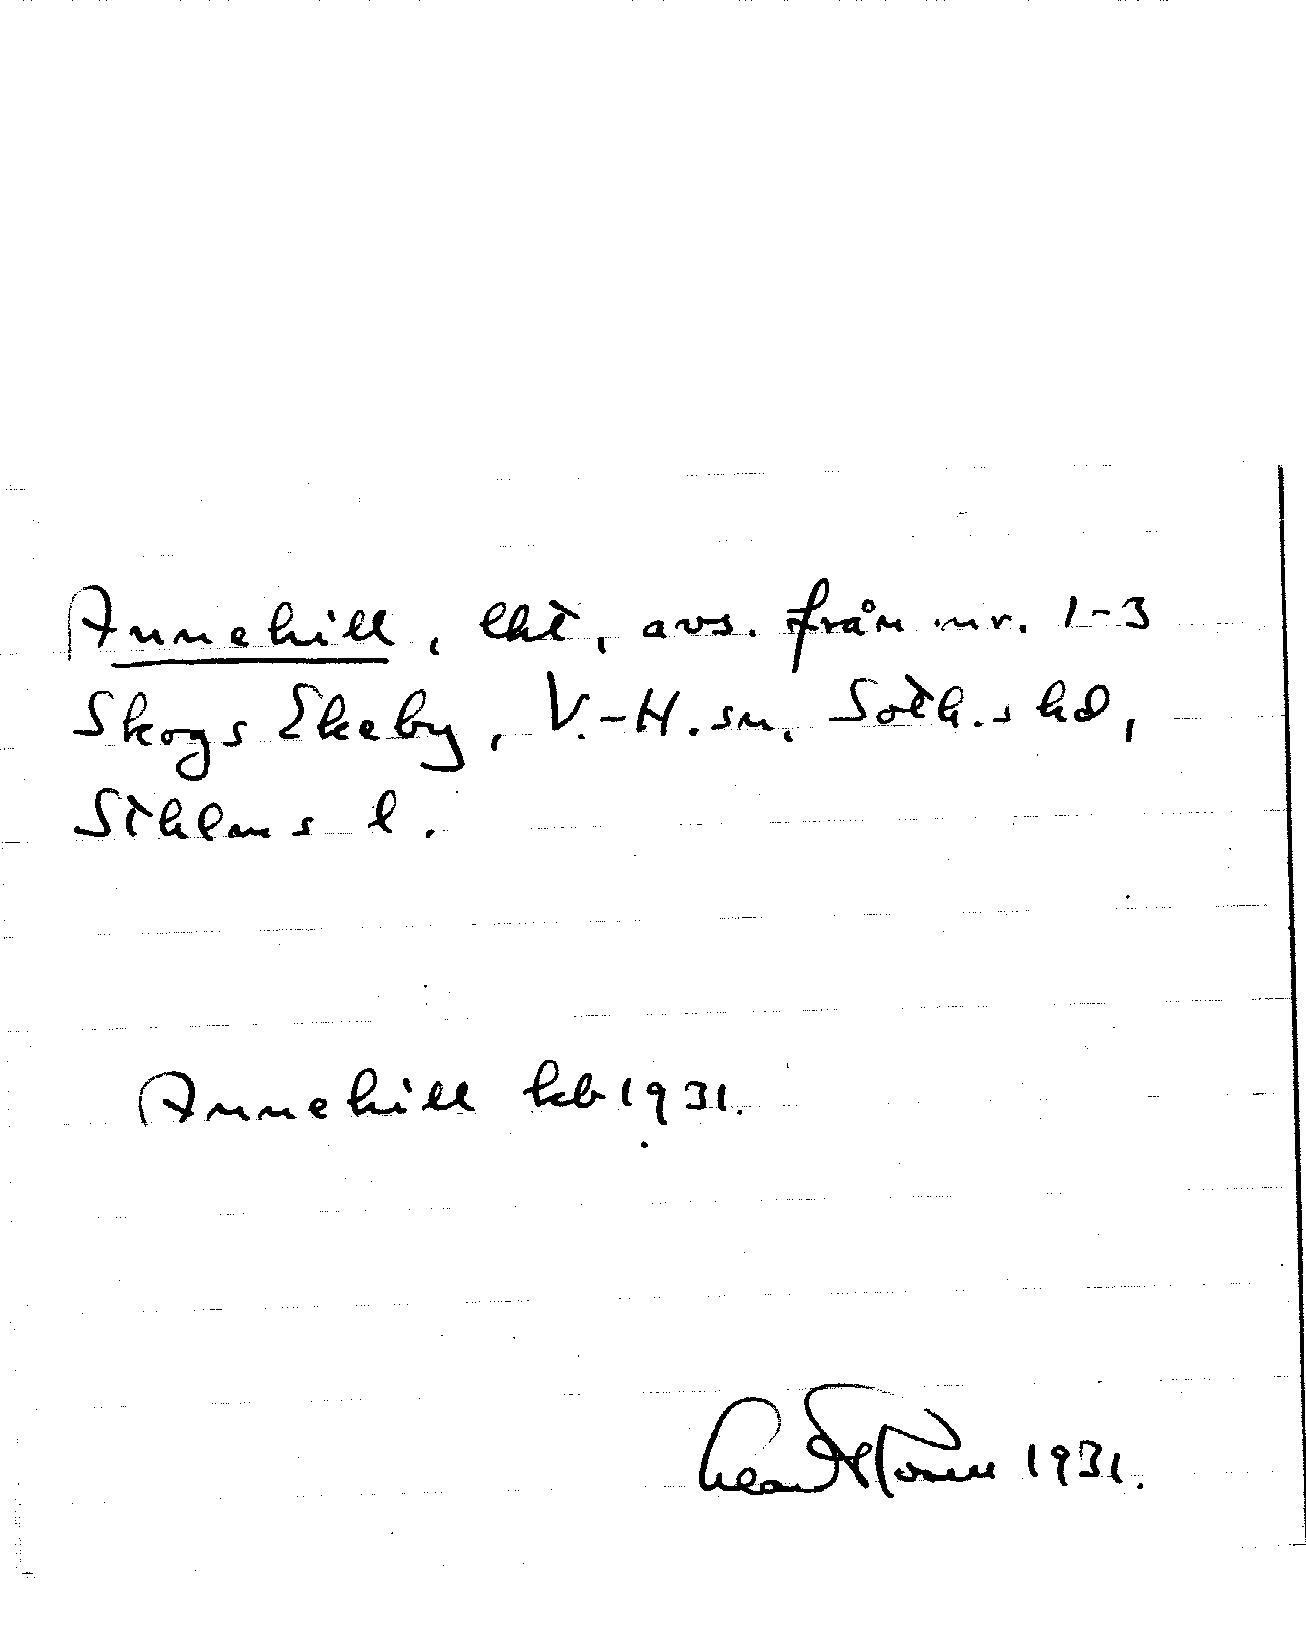 Annehill, lht, avs. från nr. 1-3
Skogs Ekeby, V.-H. sn, Soth.s hd,
Sthlms l.
Annehill kb 1931.
1931.